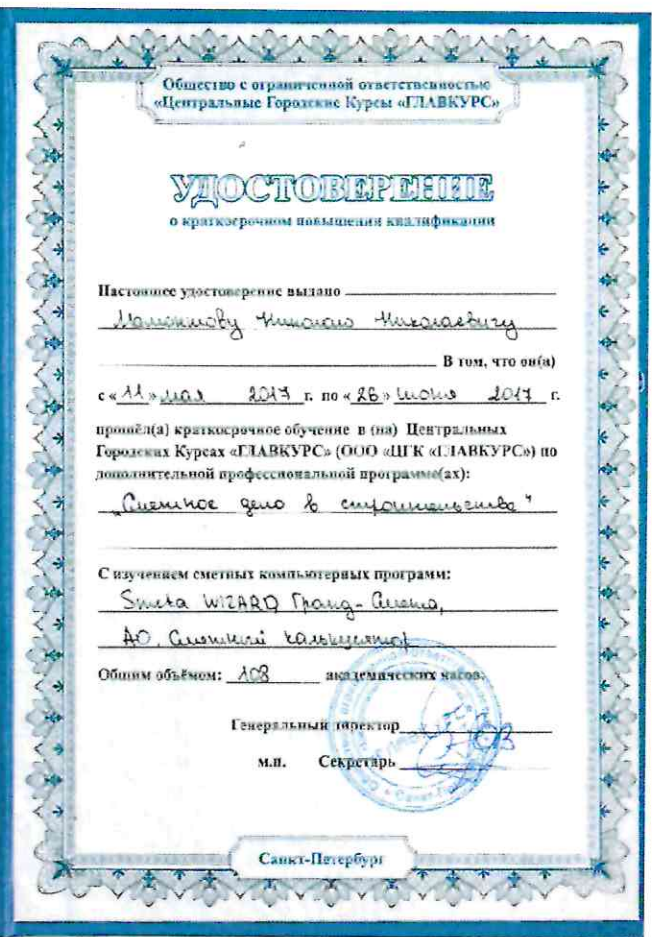 Общество с ограниченной ответственностью
«Центральные Городские Курсы «ГЛАВКУРС»
УДОСТОВЕРЕНИЕ
о краткосрочном повышении квалификации
Настоящее удостоверение выдано
Николаю Николаевичу
В том, что он(а)
с «11» мая 2017 г. по «26» июня 2017 г.
прошёл(а) краткосрочное обучение в (на) Центральных
Городских Курсах «ГЛАВКУРС» (ООО «ЦГК «ГЛАВКУРС») по
дополнительной профессиональной программе(ах):
„Сметное дело в строительстве"
С изучением сметных компьютерных программ:
Smeta WIZARD Гранд-Смета,
АО. Сметный калькулятор
Общим объёмом: 108 академических часов.
Генеральный директор
м.п. Секретарь
Санкт-Петербург